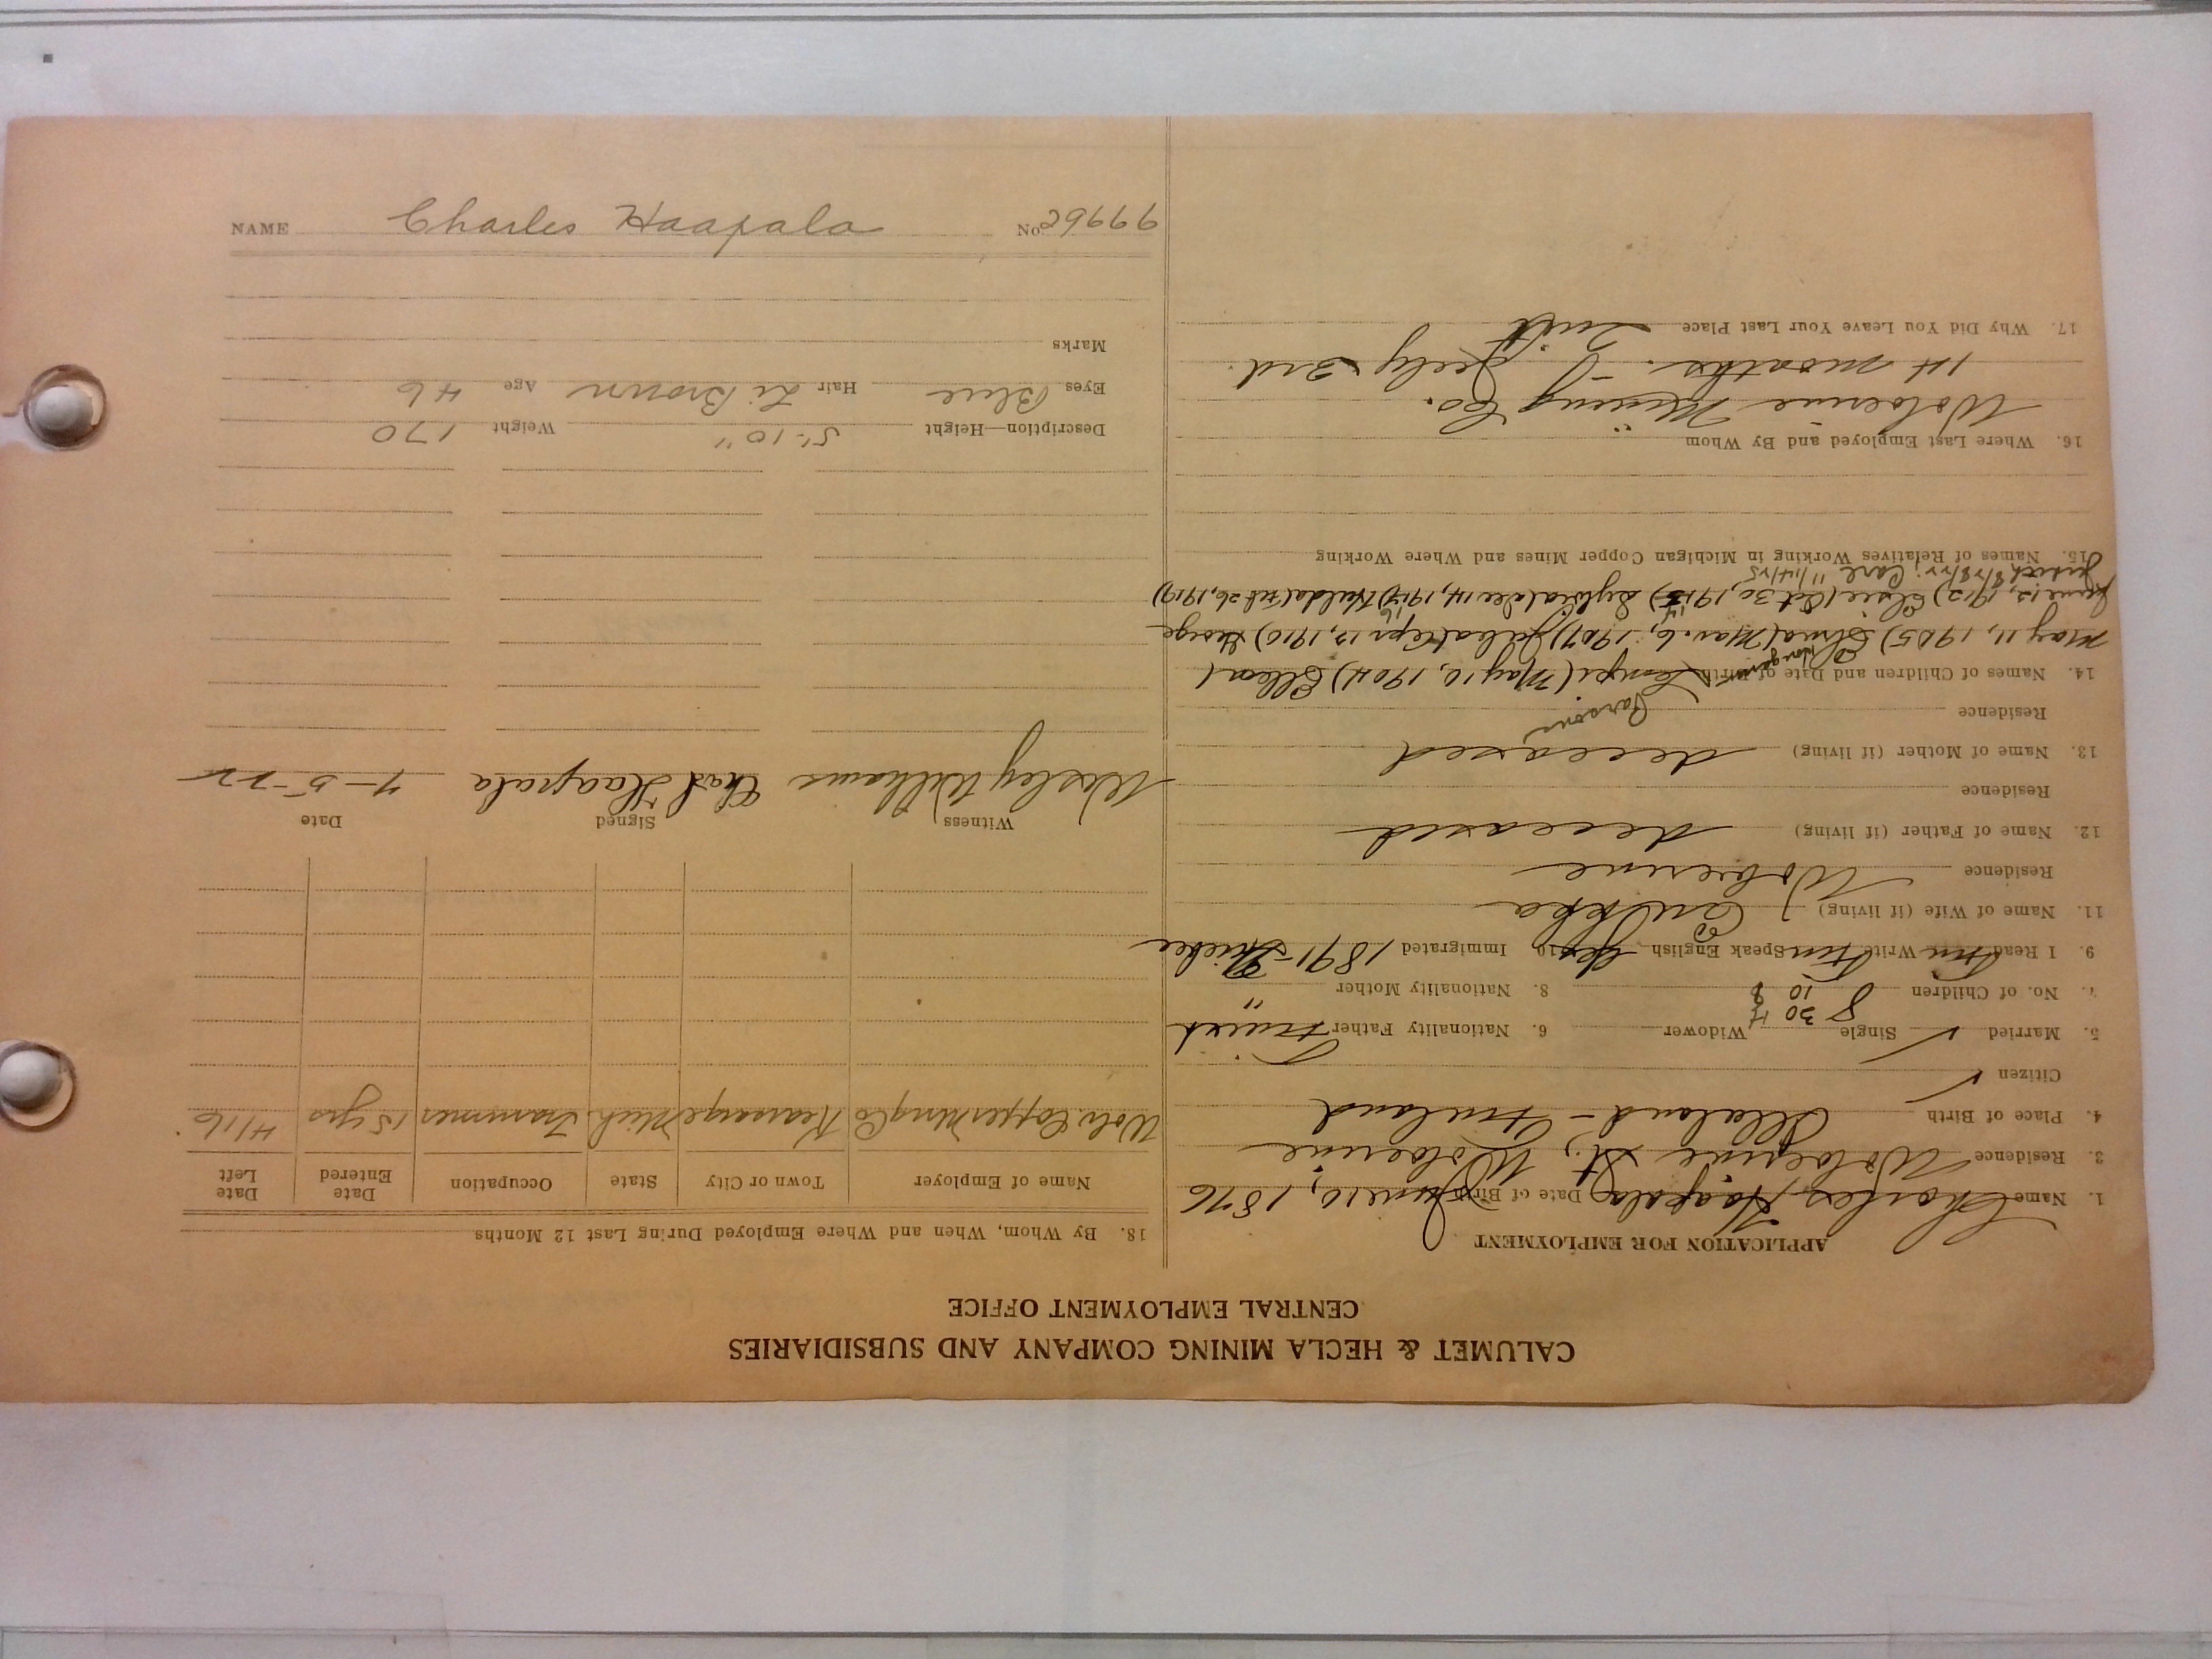 CALUMET & HECLA MINING COMPANY AND SUBSIDIARIES
CENTRAL EMPLOYMENT OFFICE
APPLICATION FOR EMPLOYMENT
1. Name Charles Haapala Date of Birth June 10, 1876
3. Residence Wolverine St., Wolverine
4. Place of Birth Finland
Citizen ✓
5. Married ✓ Single Widower 6. Nationality Father Finnish
7. No. of Children 8 8. Nationality Mother "
9. I Read Finn Write Finn Speak English Yes 10. Immigrated 1891
11. Name of Wife (if living)
Residence Wolverine
12. Name of Father (if living) deceased
Residence
13. Name of Mother (if living) deceased
Residence
14. Names of Children and Date of Birth Lempi (May 10, 1904) Ellen (
May 11, 1905) (Mar. 6, 1907) (Apr 13, 1910) George
June 12, 1912) Elsie (Oct 30, 1913) Sylvia (Dec 14, 1917) Hulda (Feb 26, 1919)
8/28/22. Carl 11/14/25
15. Names of Relatives Working in Michigan Copper Mines and Where Working
16. Where Last Employed and By Whom
Wolverine Mining Co.
14 months. - July 3rd
17. Why Did You Leave Your Last Place Quit
18. By Whom, When and Where Employed During Last 12 Months
Name of Employer Town or City State Occupation Date Entered Date Left
Wolv. Copper Mng Co Kearsarge Mich Trammer 15 yrs 4/16
Witness Signed Date
Wesley Williams Chas Haapala 7-5-22
Description—Height 5'-10" Weight 170
Eyes Blue Hair Li Brown Age 46
Marks
NAME Charles Haapala No. 29666